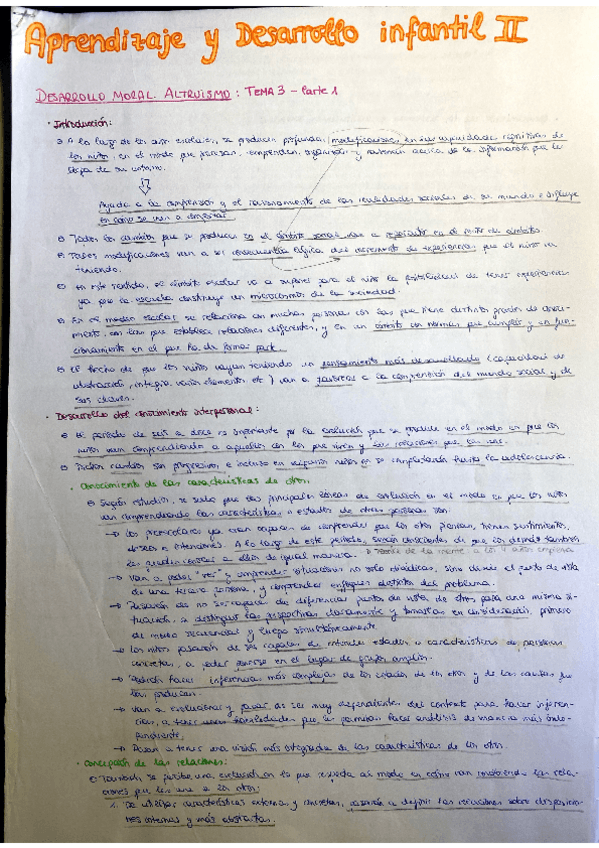 Aprendizaje y Desarrollo infantil II
DESARROLLO MORAL. ALTRUISMO: TEMA 3 - Parte 1
· Introducción:
A lo largo de los años escolares, se producen profundas modificaciones en las capacidades cognitivas de
los niños, en el modo que piensan, comprenden, organizan y razonan acerca de la información que les
llega de su entorno.
Ayuda a la comprensión y el razonamiento de las realidades sociales de su mundo e influye
en cómo se van a comportar
Todos los cambios que se producen en el ámbito social van a
Tales modificaciones van a ser consecuencia lógica del incremento de experiencias que el niño va
teniendo.
En este sentido, el ámbito escolar va a suponer para el niño la posibilidad de tener experiencias
ya que la escuela constituye un microcosmos de la sociedad.
En el medio escolar se relaciona con muchas personas con las que tiene distintos grados de conoci-
miento, con las que establece relaciones diferentes, y en un ámbito con normas que cumplir y un fun-
cionamiento en el que ha de formar parte.
El hecho de que los niños vayan teniendo un pensamiento más desarrollado (capacidad de
abstracción, integra varios elementos etc) van a favorecer a la comprensión del mundo social y de
sus claves.
· Desarrollo del conocimiento interpersonal:
El período de seis a doce es importante por la evolución que se produce en el modo en que los
niños van comprendiendo a aquellos con los que viven y las relaciones que les une.
Dichos cambios son progresivos, e incluso en algunos niños no se completarán hasta la adolescencia.
· Conocimiento de las características de otros.
Según estudios, se sabe que las principales líneas de evolución en el modo en que los niños
van comprendiendo las características o estados de otras personas son:
→ Los preescolares ya eran capaces de comprender que los otros piensan, tienen sentimientos,
deseos e intenciones. A lo largo de este período, serán conscientes de que los demás también
les pueden conocer a ellos de igual manera. Teoría de la mente a los 4 años empieza
→ Van a poder "ver" y comprender situaciones no solo diádicas, sino desde el punto de vista
de una tercera persona, y comprender enfoques distintos del problema.
→ Pasarán de no ser capaces de diferenciar puntos de vista de otros para una misma si-
tuación, a distinguir las perspectivas claramente y tomarlas en consideración, primero
de modo secuencial y luego simultáneamente.
→ Los niños pasarán de ser capaces de entender estados o características de personas
concretas, a poder ponerse en el lugar de grupos amplios.
→ Podrán hacer inferencias más complejas de los estados de los otros y de las causas que
los producen.
→ Van a evolucionar y pasar de ser muy dependientes del contexto para hacer inferen-
cias, a tener unas habilidades que le permita hacer análisis de manera más inde-
pendiente.
→ Pasan a tener una visión más integrada de las características de los otros.
· Concepción de las relaciones:
También se percibe una evolución en lo que respecta al modo en cómo van las rela-
ciones que les une a los otros:
1. De utilizar características externas y concretas, pasarán a definir las relaciones sobre disposicio-
nes internas y más abstractas.